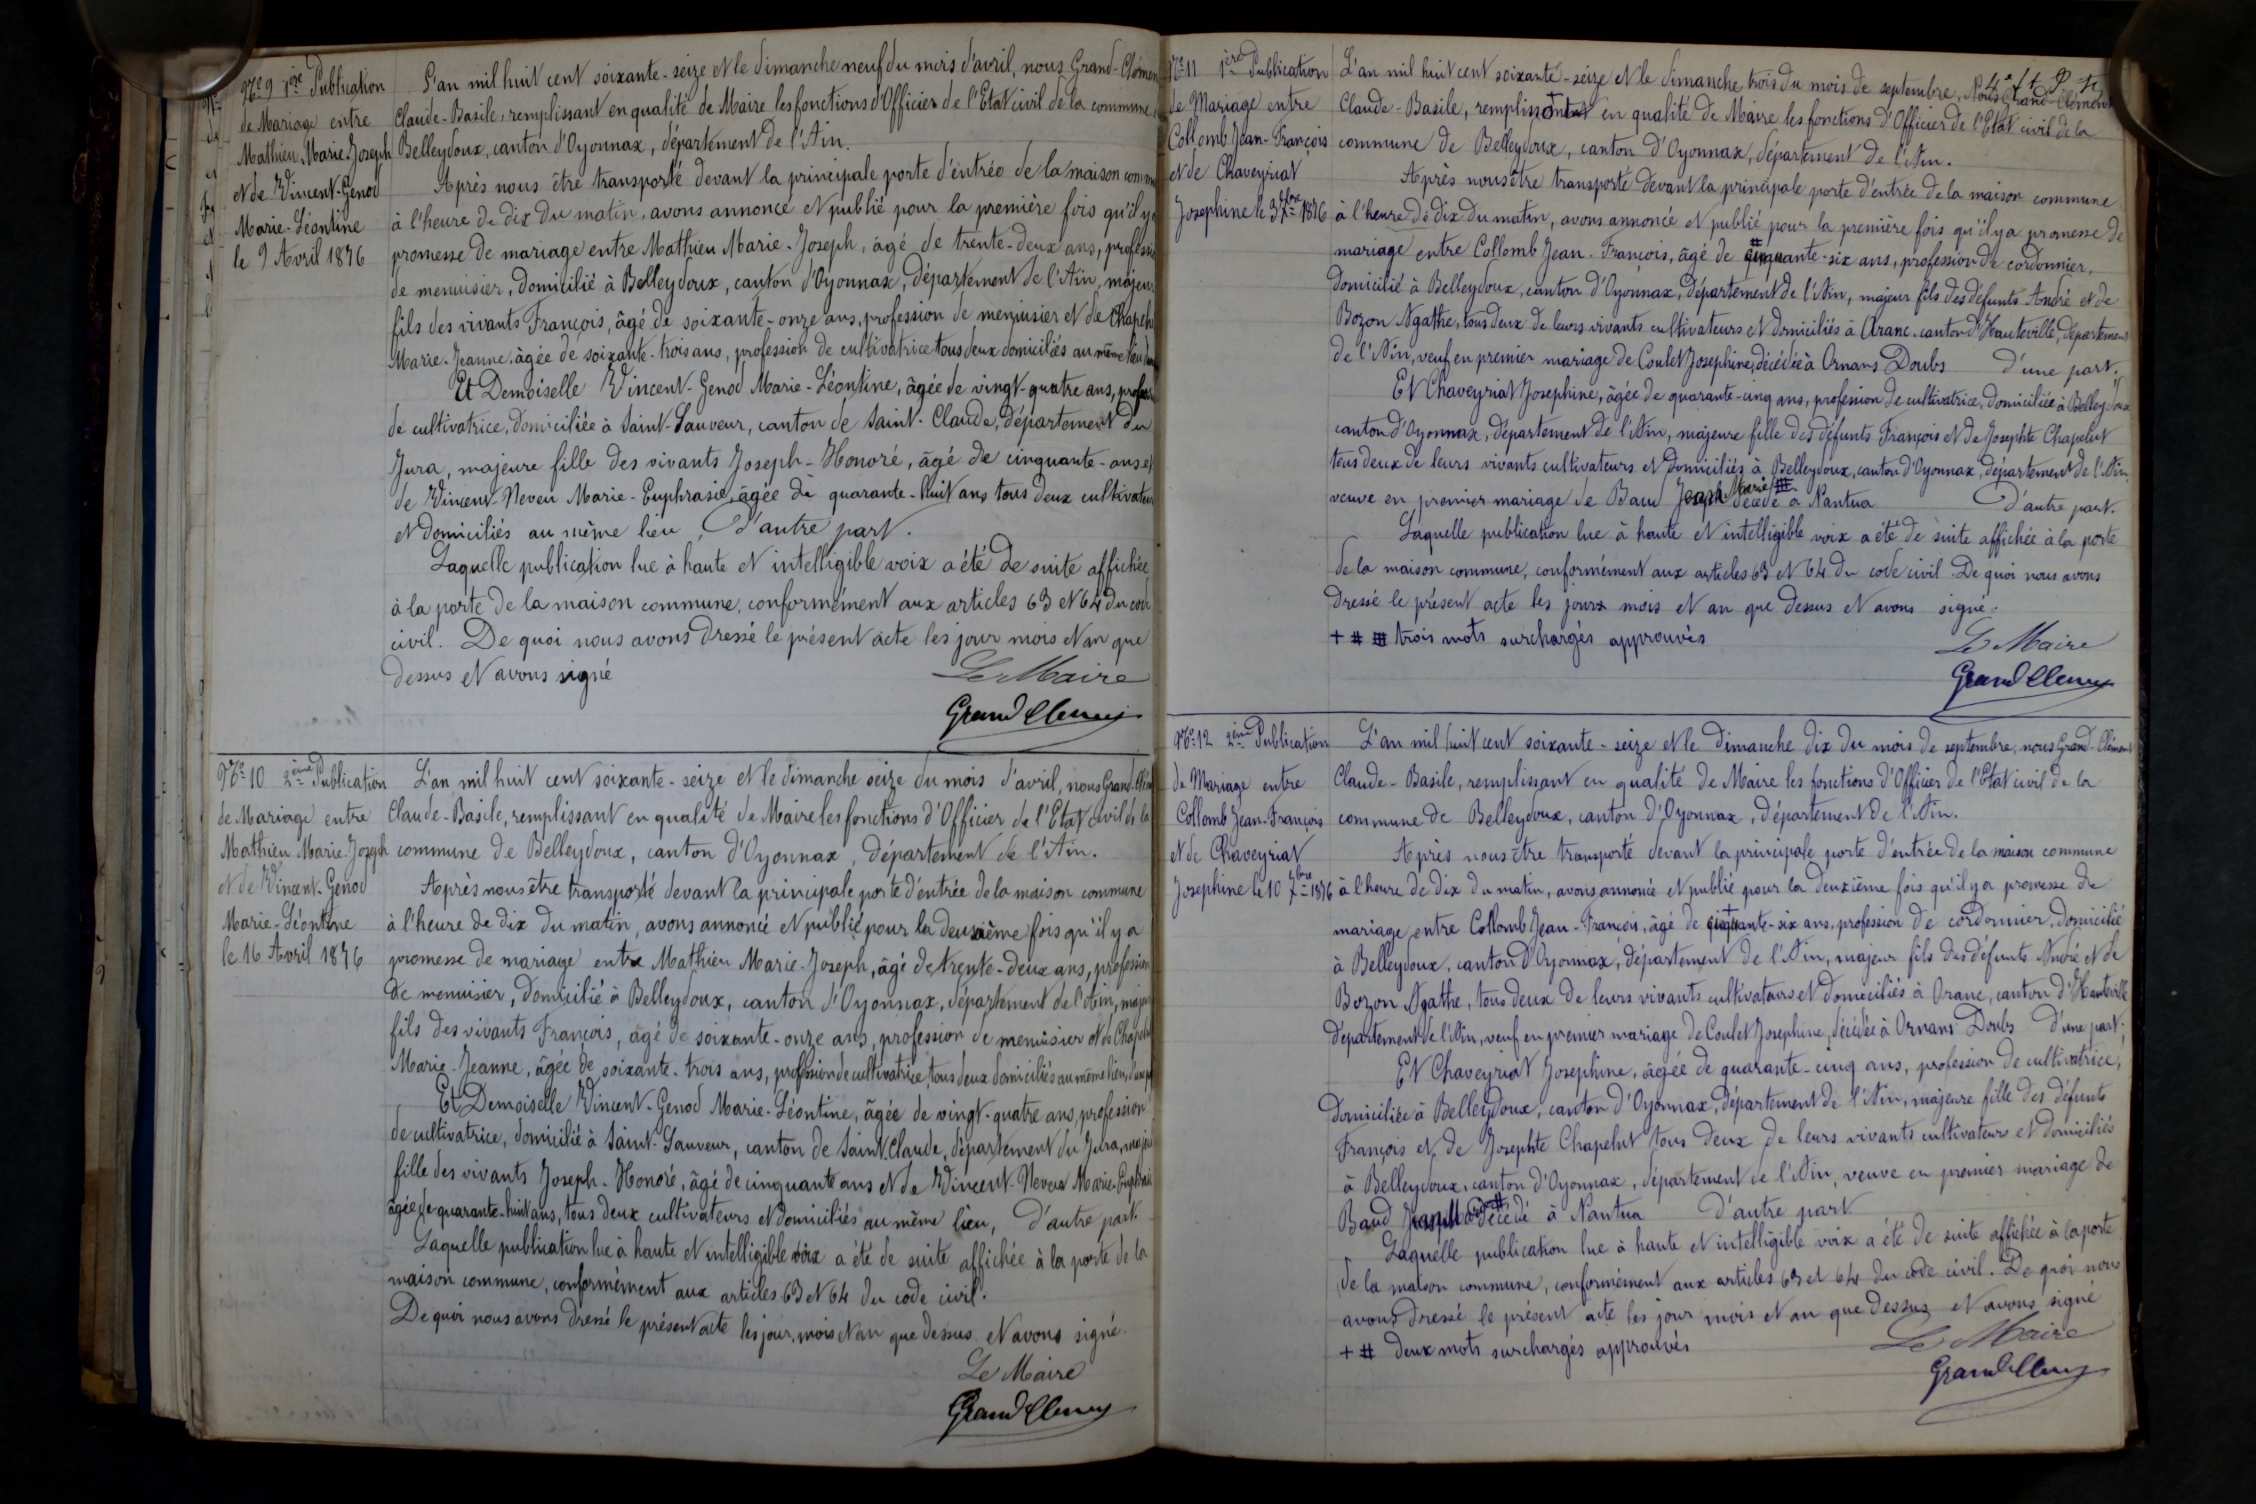 Nº 9 1ère Publication
de Mariage entre
Mathieu Marie-Joseph
et de Vincent-Genod
Marie-Léontine
le 9 Avril 1876
L'an mil huit cent soixante-seize et le dimanche neuf du mois d'avril, nous Grand-Clémen
Claude-Basile, remplissant en qualité de Maire les fonctions d'Officier de l'Etat civil de la commune
Belleydoux, canton d'Oyonnax, département de l'Ain.
Après nous être transporté devant la principale porte d'entrée de la maison commune
à l'heure de dix du matin, avons annoncé et publié pour la première fois qu'il y a
promesse de mariage entre Mathieu Marie-Joseph, âgé de trente-deux ans, profession
de menuisier, domicilié à Belleydoux, canton d'Oyonnax, département de l'Ain, majeur
fils des vivants François, âgé de soixante-onze ans, profession de menuisier et de Chapelu
Marie-Jeanne, âgée de soixante-trois ans, profession de cultivatrice tous deux domiciliés au même lieu
Et Demoiselle Vincent-Genod Marie-Léontine, âgée de vingt-quatre ans, profes
de cultivatrice, domiciliée à Saint-Sauveur, canton de Saint-Claude, département du
Jura, majeure fille des vivants Joseph-Honoré, âgé de cinquante-ans et
de Vincent-Neveu Marie-Euphrasie, âgée de quarante-huit ans tous deux cultivateurs
et domiciliés au même lieu, d'autre part.
Laquelle publication lue à haute et intelligible voix a été de suite affichée
à la porte de la maison commune, conformément aux articles 63 et 64 du code
civil. De quoi nous avons dressé le présent acte les jour mois et an que
dessus et avons signé
Le Maire
Grandclément
Nº 10 2ème Publication
de Mariage entre
Mathieu Marie-Joseph
et de Vincent-Genod
Marie-Léontine
le 16 Avril 1876
L'an mil huit cent soixante-seize et le dimanche seize du mois d'avril, nous Grand-Clém
Claude-Basile, remplissant en qualité de Maire les fonctions d'Officier de l'Etat civil de la
commune de Belleydoux, canton d'Oyonnax, département de l'Ain.
Après nous être transporté devant la principale porte d'entrée de la maison commune
à l'heure de dix du matin, avons annoncé et publié pour la deuxième fois qu'il y a
promesse de mariage entre Mathieu Marie-Joseph, âgé de trente-deux ans, profession
de menuisier, domicilié à Belleydoux, canton d'Oyonnax, département de l'Ain, majeur
fils des vivants François, âgé de soixante-onze ans, profession de menuisier et de Chapelu
Marie-Jeanne, âgée de soixante-trois ans, profession de cultivatrice, tous deux domiciliés au même lieu,
Et Demoiselle Vincent-Genod Marie-Léontine, âgée de vingt-quatre ans, profession
de cultivatrice, domicilié à Saint-Sauveur, canton de Saint-Claude, département du Jura, majeu
fille des vivants Joseph-Honoré, âgé de cinquante ans et de Vincent-Neveu Marie-Euphrasie
âgée de quarante-huit ans, tous deux cultivateurs et domiciliés au même lieu, d'autre part.
Laquelle publication lue à haute et intelligible voix a été de suite affichée à la porte de la
maison commune, conformément aux articles 63 et 64 du code civil.
De quoi nous avons dressé le présent acte les jour, mois et an que dessus et avons signé
Le Maire
Grandclément
Nº 11 1ère Publication
de Mariage entre
Collomb Jean-François
et de Chaveyriat
Josephine le 3 7bre 1876
L'an mil huit cent soixante-seize et le dimanche trois du mois de septembre, Nous Grand-Clément
Claude-Basile, remplissant en qualité de Maire les fonctions d'Officier de l'Etat civil de la
commune de Belleydoux, canton d'Oyonnax, département de l'Ain.
Après nous être transporté devant la principale porte d'entrée de la maison commune
à l'heure de dix du matin, avons annoncé et publié pour la première fois qu'il y a promesse de
mariage entre Collomb Jean-François, âgé de cinquante-six ans, profession de cordonnier,
domicilié à Belleydoux, canton d'Oyonnax, département de l'Ain, majeur fils des défunts André et de
Bozon Agathe, tous deux de leurs vivants cultivateurs et domiciliés à Aranc canton d'Hauteville, département
de l'Ain, veuf en premier mariage de Coulet Josephine, décédée à Ornans Doubs d'une part.
Et Chaveyriat Josephine, âgée de quarante-cinq ans, profession de cultivatrice, domiciliée à Belleydoux
canton d'Oyonnax, département de l'Ain, majeure fille des défunts François et de Josephte Chapelut
tous deux de leurs vivants cultivateurs et domiciliés à Belleydoux, canton d'Oyonnax, département de l'Ain.
veuve en premier mariage de Baud Joseph Marie # décédé à Nantua d'autre part.
Laquelle publication lue à haute et intelligible voix a été de suite affichée à la porte
de la maison commune, conformément aux articles 63 et 64 du code civil. De quoi nous avons
dressé le présent acte les jours mois et an que dessus et avons signé.
+ # # trois mots surchargés approuvés
Le Maire
Grandclément
Nº 12 2ème Publication
de Mariage entre
Collomb Jean-François
et de Chaveyriat
Josephine le 10 7bre 1876
L'an mil huit cent soixante-seize et le dimanche dix du mois de septembre, nous Grand-Clément
Claude-Basile, remplissant en qualité de Maire les fonctions d'Officier de l'Etat civil de la
commune de Belleydoux, canton d'Oyonnax, département de l'Ain.
Après nous être transporté devant la principale porte d'entrée de la maison commune
à l'heure de dix du matin, avons annoncé et publié pour la deuxième fois qu'il y a promesse de
mariage entre Collomb Jean-François, âgé de cinquante-six ans, profession de cordonnier, domicilié
à Belleydoux, canton d'Oyonnax, département de l'Ain, majeur fils des défunts André et de
Bozon Agathe, tous deux de leurs vivants cultivateurs et domiciliés à Aranc, canton d'Hauteville
département de l'Ain, veuf en premier mariage de Coulet Josephine, décédée à Ornans Doubs d'une part.
Et Chaveyriat Josephine, âgée de quarante-cinq ans, profession de cultivatrice,
domiciliée à Belleydoux, canton d'Oyonnax, département de l'Ain, majeure fille des défunts
François et de Josephte Chapelut tous deux de leurs vivants cultivateurs et domiciliés
à Belleydoux, canton d'Oyonnax, département de l'Ain, veuve en premier mariage de
Baud Joseph # décédé à Nantua d'autre part
Laquelle publication lue à haute et intelligible voix a été de suite affichée à la porte
de la maison commune, conformément aux articles 63 et 64 du code civil. De quoi nous
avons dressé le présent acte les jour mois et an que dessus et avons signé
+ # deux mots surchargés approuvés
Le Maire
Grandclément